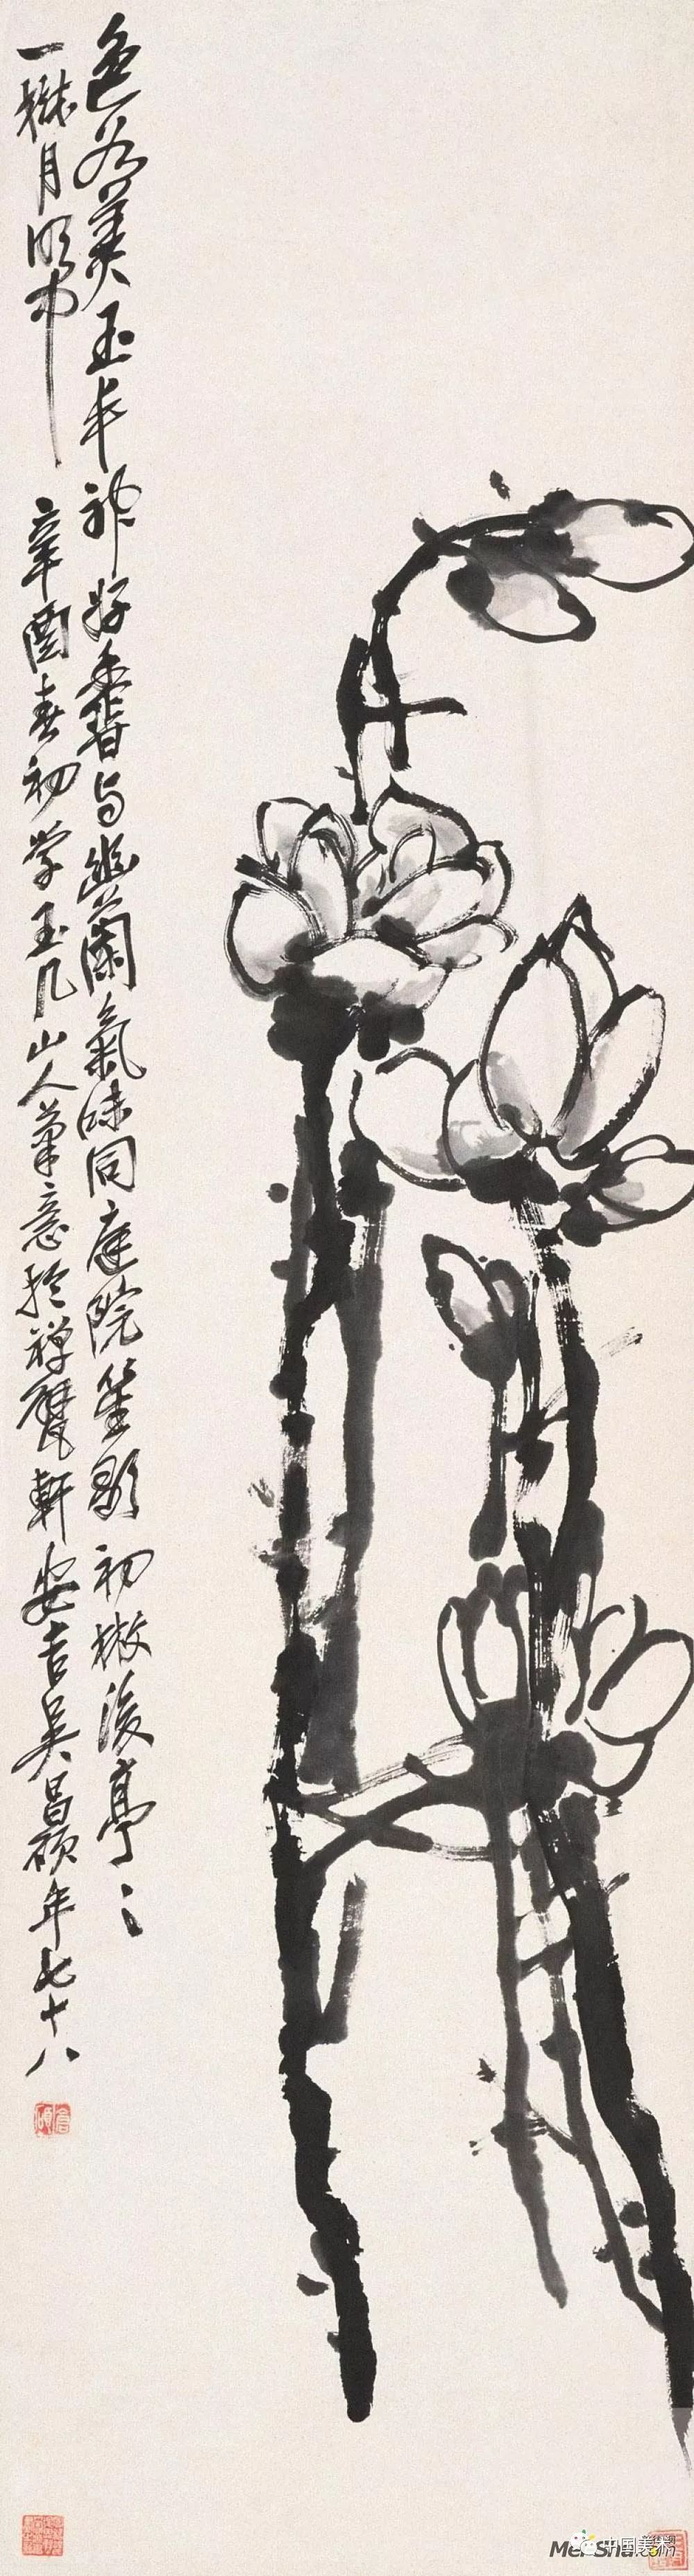 色为美玉丰神好香与幽蘭氣味同庭院笙歌初散後亭〻
一樹月明中　辛酉春初学玉几山人筆意於禪甓軒安吉吴昌碩年七十八
倉碩
Mei-Shu.com
中国美术